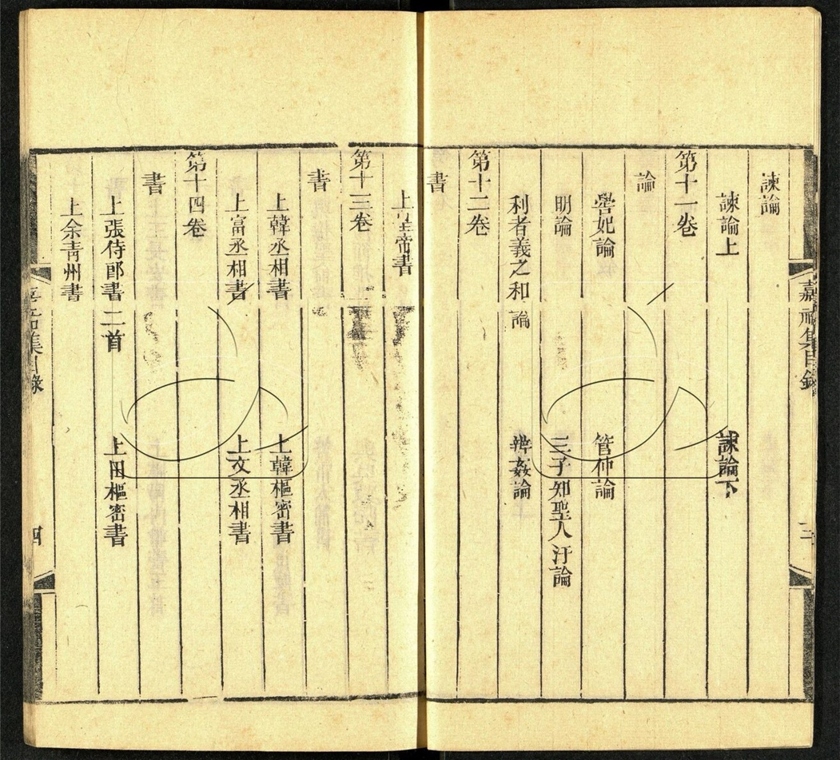 諫論
諫論上 諫論下
第十一卷
論
嚳妃論 管仲論
明論 三子知聖人汙論
利者義之和論 辨姦論
第十二卷
書
上皇帝書
第十三卷
書
上韓丞相書 上韓樞密書
上富丞相書 上文丞相書
第十四卷
書
上張侍郎書二首 上田樞密書
上余青州書
嘉祐集目錄 三
嘉祐集目錄 四